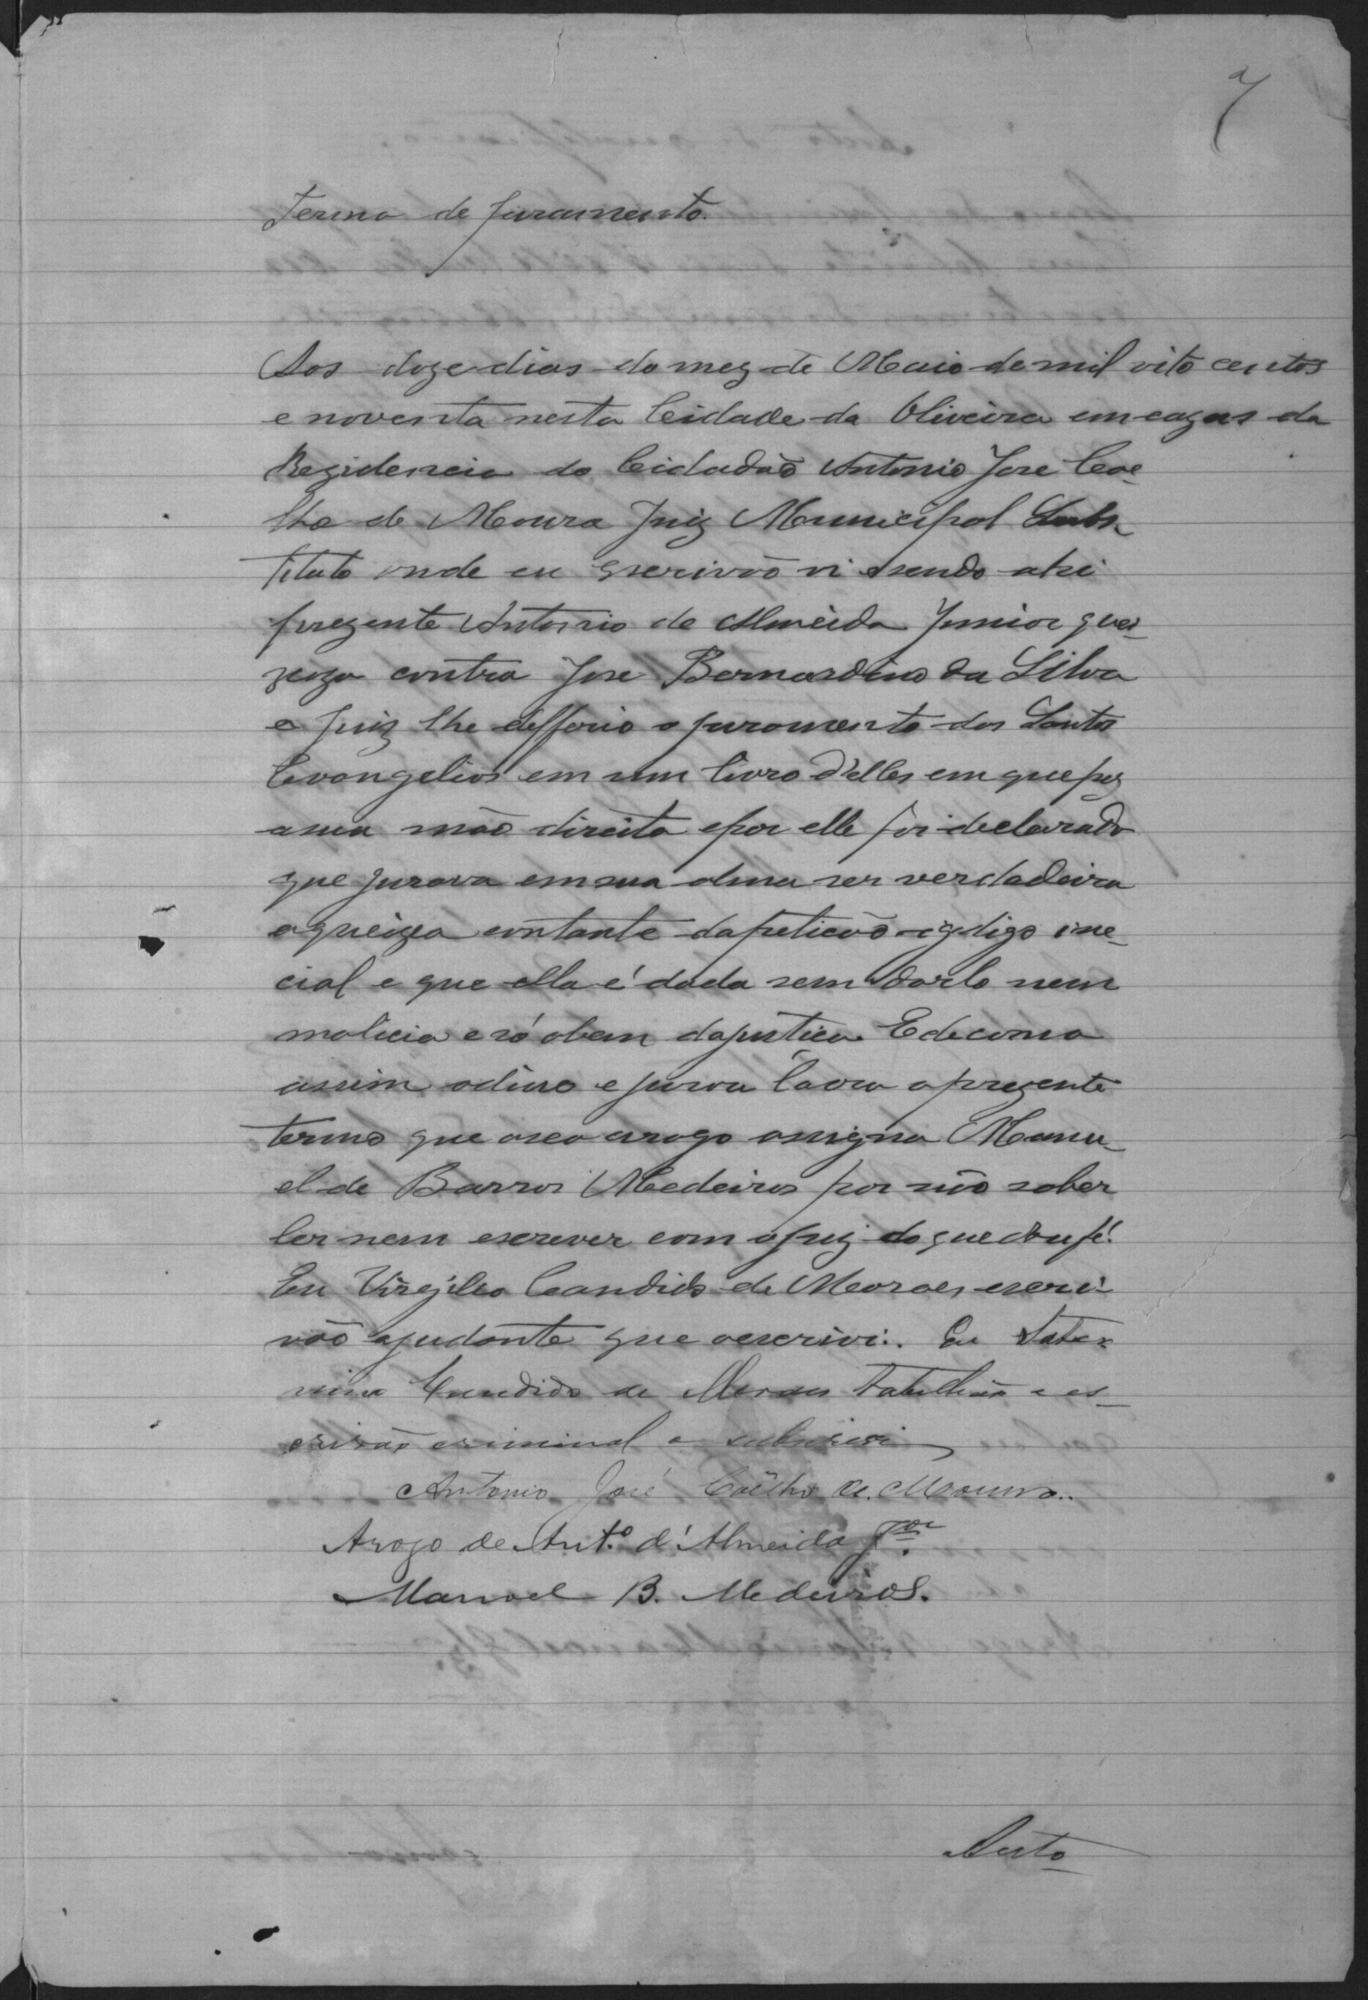 7
Termo de juramento.
Aos doze dias do mez de Maio de mil oito centos
e noventa nesta Cidade da Oliveira em cazas da
Rezidencia do Cidadão Antonio Jose Coe-
lho de Moura Juiz Municipal Subs-
tituto onde eu escrivão vi e sendo ahi
prezente Antonio de Almeida Junior quei-
xozo contra Jose Bernardino da Silva
o juiz lhe defferio o juramento dos Santos
Evangelios em um livro d'elles em que poz
a sua mão direita e por elle foi declarado
que jurava em sua alma ser verdadeira
a queixa contante da peticão digo ine-
cial e que ella é dada sem dorlo nem
malicia e só a bem da justica. E de como
assim o disse e jurou lavro o prezente
termo que a seo arogo assigna Manu-
el de Barros Medeiros por não saber
ler nem escrever com o juiz do que dou fé.
Eu Virgileo Candido de Moraes escri-
vão ajudante que o escrivi. Eu
Candido de Moraes Tabellião e es-
crivão criminal o subscrevi
Antonio José Coêlho de Moura..
Arogo de Ant.º d'Almeida J.or
Manoel B. Medeiros.
Auto